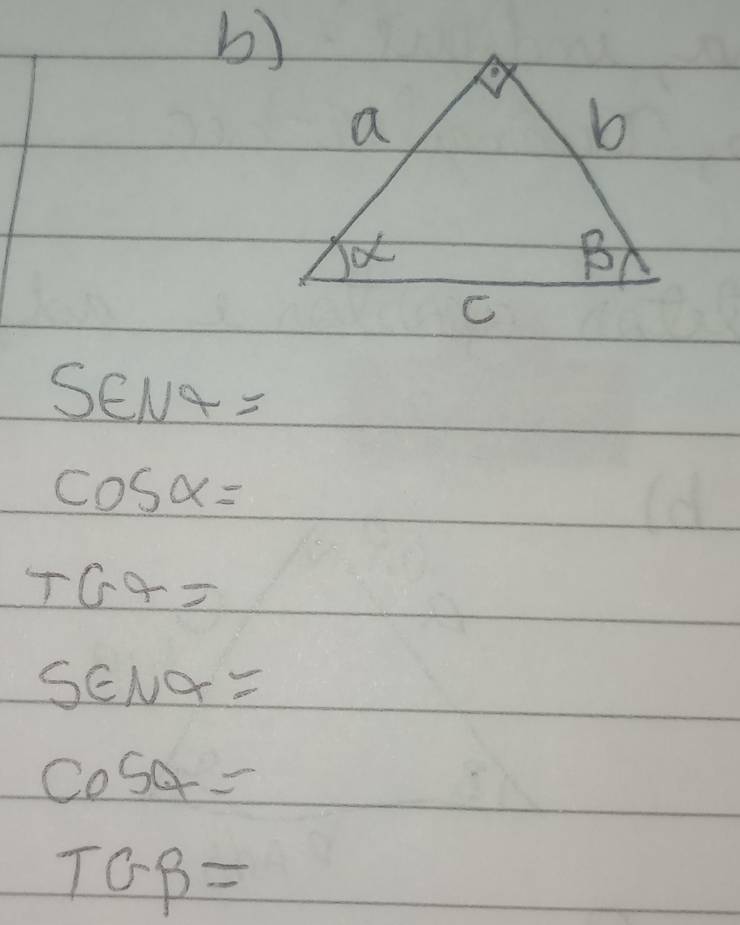 b)
a b
α β
c
SENα=
COSα=
TGα=
SENα=
COSα=
TGβ=